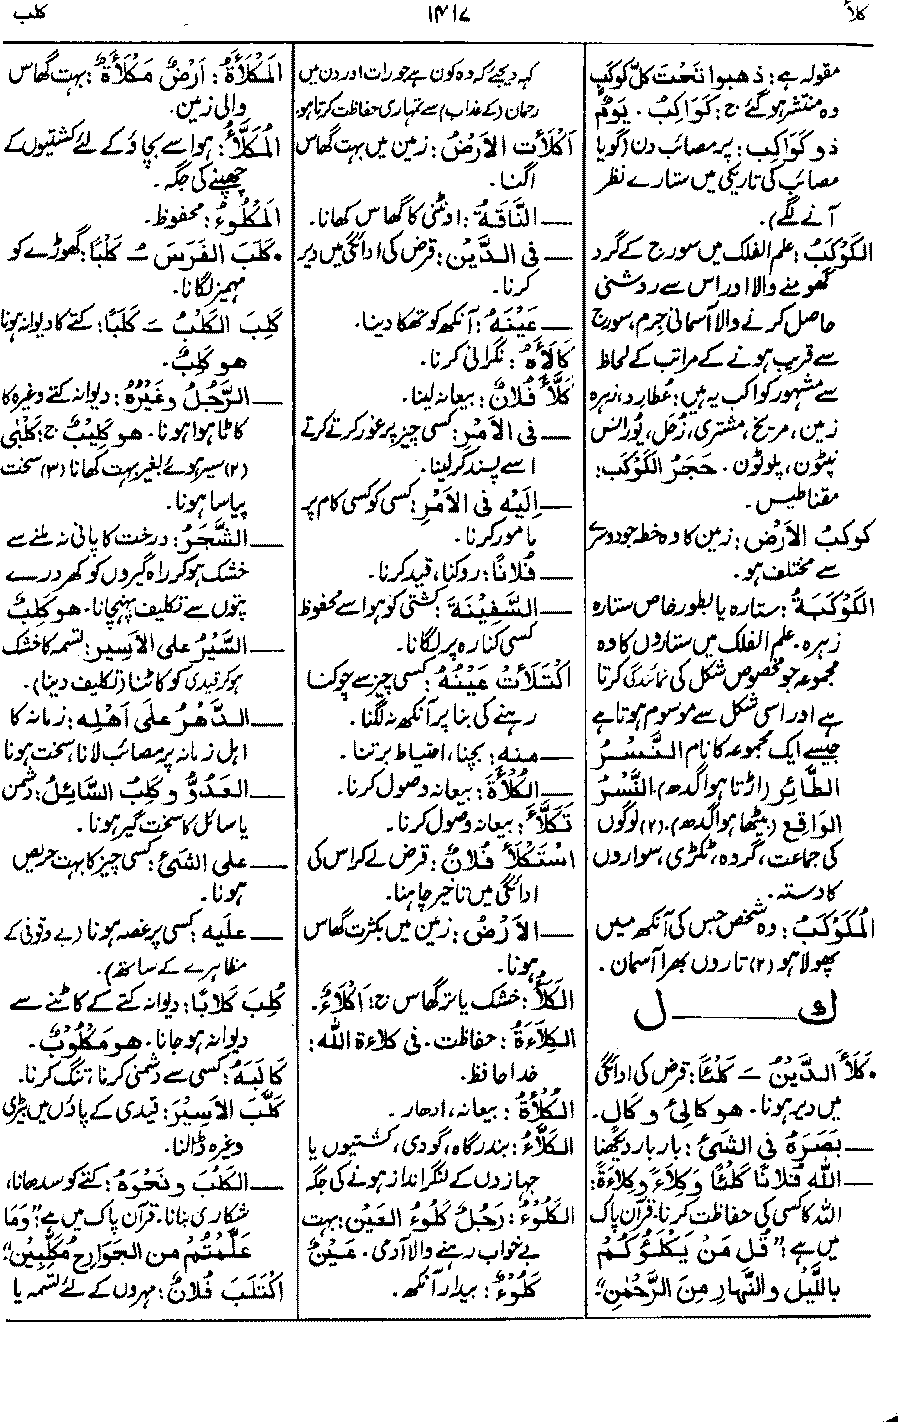 کلأ
۱۴۱۷
کلب
مقولہ ہے: ذھبوا تَحْتَ کُلِّ کَوکَبٍ
وہ منتشر ہوگئے ج: کَوَاکِبُ۔ یَوْمٌ
ذو کَوَاکِبَ: پر مصائب دن (گویا
مصائب کی تاریکی میں ستارے نظر
آنے لگے)۔
الکَوْکَبُ: علم الفلک میں سورج کے گرد
گھومنے والا اور اس سے روشنی
حاصل کرنے والا آسمانی جرم، سورج
سے قریب ہونے کے مراتب کے لحاظ
سے مشہور کواکب یہ ہیں: عُطارد، زہرہ
زمین، مریخ، مشتری، زُحل، یُورانس
نپٹون، پلوٹون۔ حَجَرُ الکَوْکَبِ:
مقناطیس۔
کَوکَبُ الأرْضِ: زمین کا وہ خطہ جو دوسرے
سے مختلف ہو۔
الکَوْکَبَةُ: ستارہ یا بطور خاص ستارہ
زہرہ۔ علم الفلک میں ستاروں کا وہ
مجموعہ جو مخصوص شکل کی نمائندگی کرتا
ہے اور اسی شکل سے موسوم ہوتا ہے
جیسے ایک مجموعہ کا نام النَّسْرُ
الطَّائِر (اڑتا ہوا گدھ)، النَّسْرُ
الوَاقِع (بیٹھا ہوا گدھ)۔ (۲) لوگوں
کی جماعت، گروہ، ٹکڑی، سواروں
کا دستہ۔
المُکَوْکَبُ: وہ شخص جس کی آنکھ میں
پھولا ہو (۲) تاروں بھرا آسمان۔
ک ــــــ ل
• کَلَأَ الدَّیْنُ ــَـ کَلْئًا: قرض کی ادائگی
میں دیر ہونا۔ ھو کالِئٌ و کَالٍ۔
ــ بَصَرَهُ فی الشیْءِ: بار بار دیکھنا
ــ اللهُ فُلَانًا کَلْئًا وَکِلَاءً وَکِلَاءَةً:
اللہ کا کسی کی حفاظت کرنا، قرآن پاک
میں ہے: "قُلْ مَنْ یَکْلَؤُکُمْ
بِاللَّیْلِ والنَّهارِ مِنَ الرَّحْمٰنِ"
کہہ دیجئے کہ وہ کون ہے جو رات اور دن میں
رحمان (کے عذاب) سے تمہاری حفاظت کرتا ہو۔
أکْلَأَتِ الأرْضُ: زمین میں بہت گھاس
اگنا۔
ــ النَّاقَةُ: اونٹنی کا گھاس کھانا۔
ــ فی الدَّیْنِ: قرض کی ادائگی میں دیر
کرنا۔
ــ عَیْنَهُ: آنکھ کو تھکا دینا۔
کَالَأَهُ: نگرانی کرنا۔
کَلَّأَ فُلَانٌ: بیعانہ لینا۔
ــ فی الأمْرِ: کسی چیز پر غور کرتے کرتے
اسے پسند کرلینا۔
ــ إلَیْهِ فی الأمْرِ: کسی کو کسی کام پر
مامور کرنا۔
ــ فُلَانًا: روکنا، قید کرنا۔
ــ السَّفِیْنَةَ: کشتی کو ہوا سے محفوظ
کسی کنارہ پر لگانا۔
اکْتَلَأَتْ عَیْنُهُ: کسی چیز سے چوکنا
رہنے کی بنا پر آنکھ نہ لگنا۔
ــ منه: بچنا، احتیاط برتنا۔
ــ الکُلْأَةَ: بیعانہ وصول کرنا۔
تَکَلَّأَ: بیعانہ وصول کرنا۔
اسْتَکْلَأَ فُلَانٌ: قرض لے کر اس کی
ادائگی میں تاخیر چاہنا۔
ــ الأرْضُ: زمین میں بکثرت گھاس
ہونا۔
الکَلَأُ: خشک یا تر گھاس ج: أکْلَاءٌ۔
الکِلَاءَةُ: حفاظت۔ فی کِلَاءَةِ اللهِ:
خدا حافظ۔
الکُلْأَةُ: بیعانہ، ادھار۔
الکَلَّاءُ: بندرگاہ، گودی، کشتیوں یا
جہازوں کے لنگرانداز ہونے کی جگہ
الکَلُوْءُ: رَجُلٌ کَلُوْءُ العَیْنِ: بہت
بے خواب رہنے والا آدمی۔ عَیْنٌ
کَلُوْءٌ: بیدار آنکھ۔
المَکْلَأَةُ: أرْضٌ مَکْلَأَةٌ: بہت گھاس
والی زمین۔
المُکَلَّأُ: ہوا سے بچاؤ کے لئے کشتیوں کے
چھپنے کی جگہ۔
المَکْلُوْءُ: محفوظ۔
• کَلَبَ الفَرَسَ ــُـ کَلْبًا: گھوڑے کو
مہمیز لگانا۔
کَلِبَ الکَلْبُ ــَـ کَلَبًا: کتے کا دیوانہ ہونا
هو کَلِبٌ۔
ــ الرَّجُلُ وغَیْرُهُ: دیوانہ کتے وغیرہ کا
کاٹا ہوا ہونا۔ هو کَلِیْبٌ ج: کَلْبٰی
(۲) سیر ہوئے بغیر بہت کھانا (۳) سخت
پیاسا ہونا۔
ــ الشَّجَرُ: درخت کا پانی نہ ملنے سے
خشک ہو کر راہ گیروں کو کھردرے
پتوں سے تکلیف پہنچانا۔ هو کَلِبٌ
ــ السَّیْرُ علی الأسِیْرِ: تسمہ کا خشک
ہوکر قیدی کو کاٹنا (تکلیف دینا)۔
ــ الدَّهْرُ عَلَی أهْلِهِ: زمانہ کا
اہل زمانہ پر مصائب لانا، سخت ہونا
ــ العَدُوُّ و کَلِبَ السَّائِلُ: دشمن
یا سائل کا سخت گیر ہونا۔
ــ علی الشیْءِ: کسی چیز کا بہت حریص
ہونا۔
ــ عليه: کسی پر غصہ ہونا (بے وقوفی کے
مظاہرے کے ساتھ)۔
کُلِبَ کَلَابًا: دیوانہ کتے کے کاٹنے سے
دیوانہ ہوجانا۔ هو مَکْلُوْبٌ۔
کَالَبَهُ: کسی سے دشمنی کرنا، تنگ کرنا۔
کَلَّبَ الأسِیْرَ: قیدی کے پاؤں میں بیڑی
وغیرہ ڈالنا۔
ــ الکَلْبَ ونَحْوَهُ: کتے کو سدھانا،
شکاری بنانا۔ قرآن پاک میں ہے: "وَمَا
عَلَّمْتُمْ مِن الجَوَارِحِ مُکَلِّبِیْنَ"
اکْتَلَبَ فُلَانٌ: مہروں کے لئے تسمہ یا